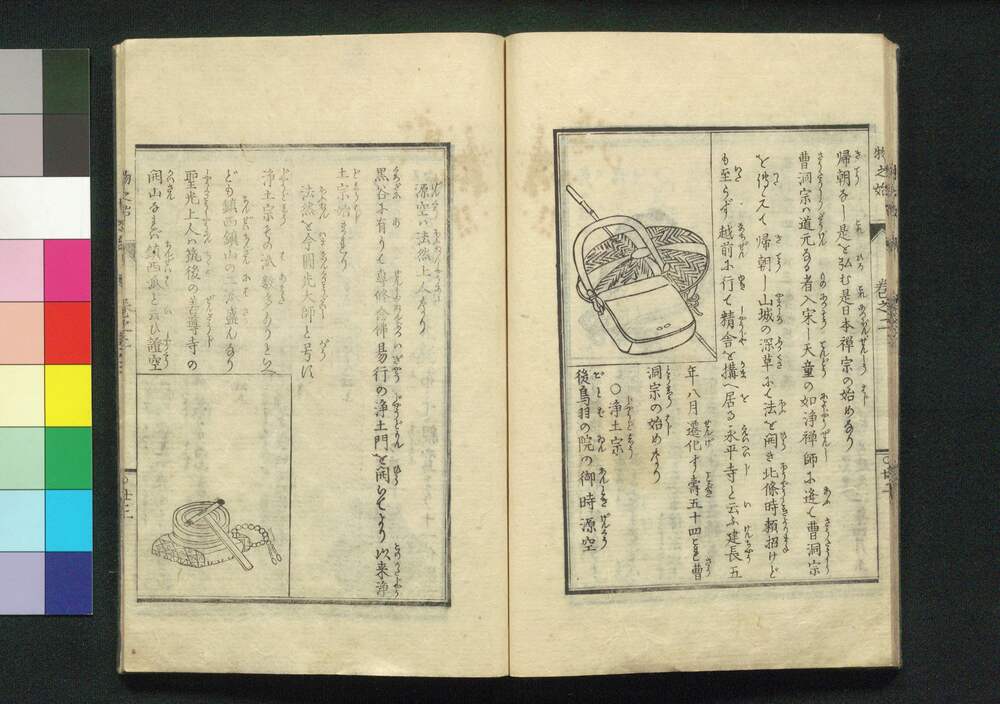 帰朝なし是を弘む是日本禅宗の始めなり
曹洞宗ハ道元なる者入宋し天童の如浄禅師に逢て曹洞宗
を傳えて帰朝し山城の深草にて法を開き北條時頼招けど
も至らず越前に行て精舎を搆へ居る永平寺と云ふ建長五
年八月遷化す壽五十四と是曹
洞宗の始めなり
○浄土宗
後鳥羽の院の御時源空
源空ハ法然上人なり
黒谷に有りて専修念佛易行の浄土門を開らせより以来浄
土宗始まるなり
法然を今圓光大師と号に
浄土宗その派数多ありといへ
ども鎮西鎮山の二流盛んなり
聖光上人ハ筑後の善導寺の
開山なるが鎮西派と云ひ證空
物之始
巻之二